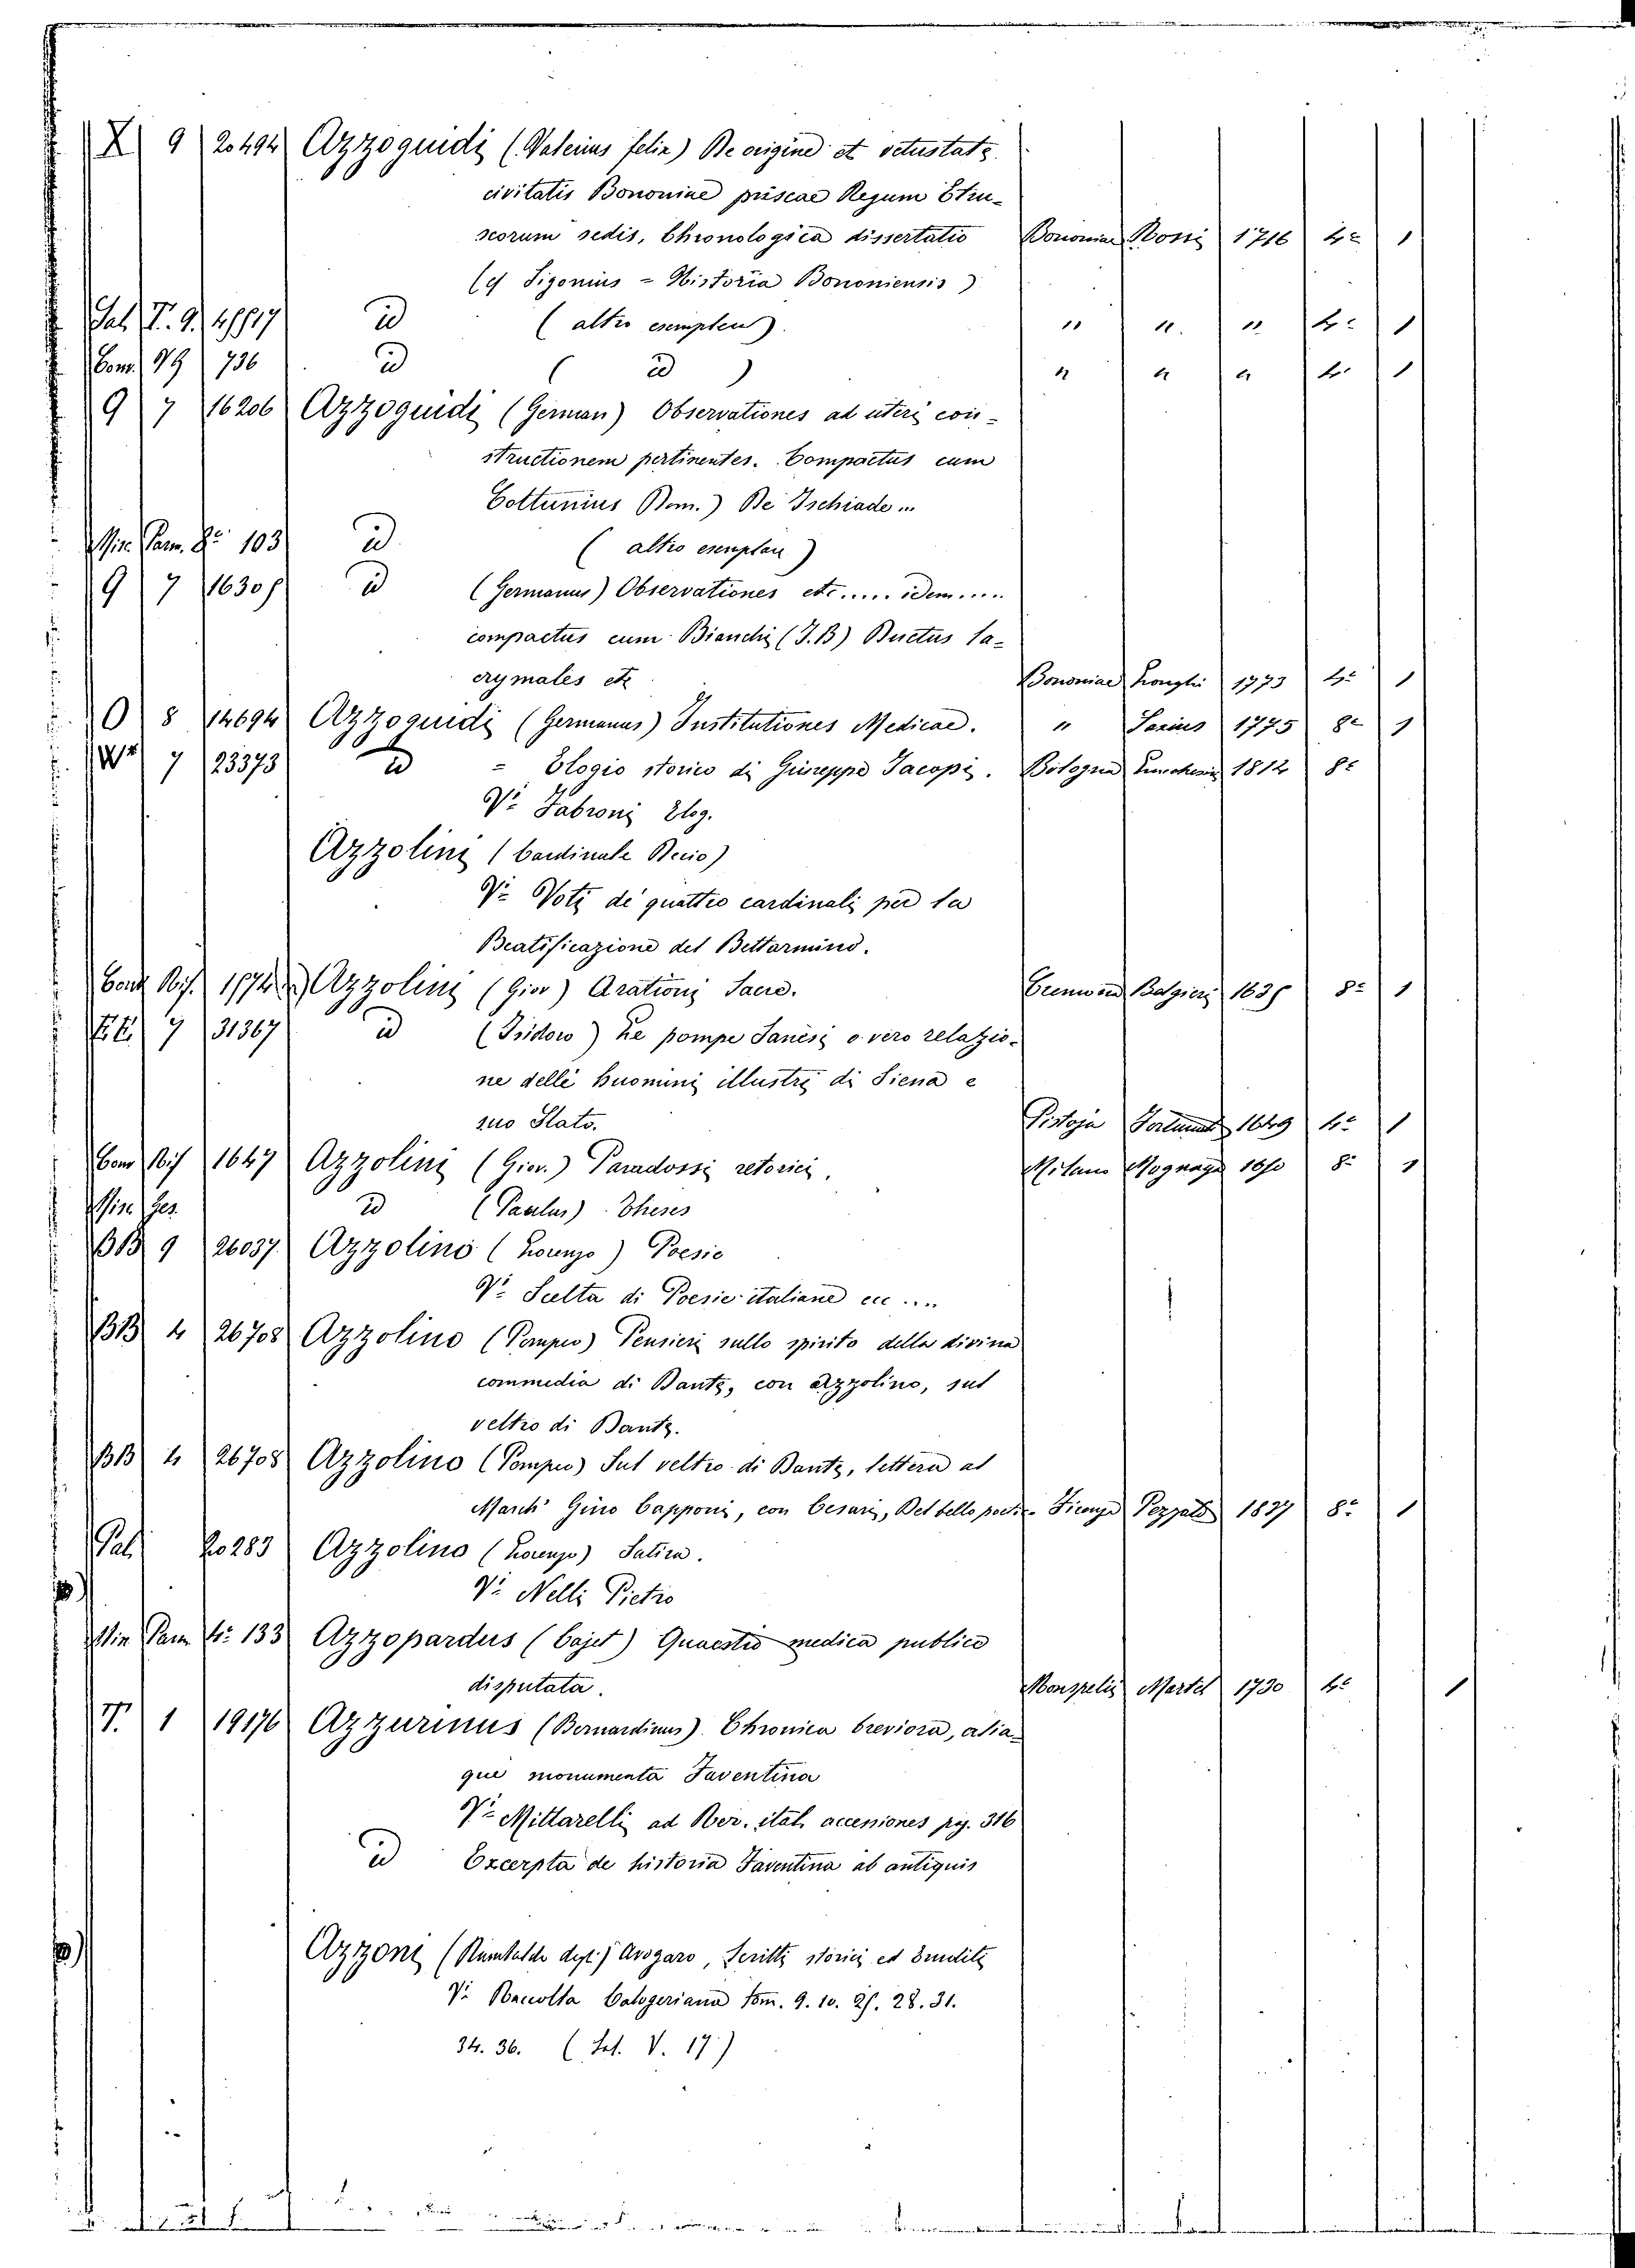 X 9 20494 Azzoguidi (Valerius felix) De origine et vetustate
civitatis Bononiae priscae Regum Etru-
scorum sedis, Chronologica dissertatio Bononiae Rossi 1716 4° 1
(cf Sigonius = Historia Bononiensis)
Pal. T. 9. id (altro esemplare) " " " 4° 1
Com. 99 736 id ( id ) " " " 4° 1
9 7 16206 Azzoguidi (German) Observationes ad uteri con-
structionem pertinentes. Compactus cum
Cottunius Dom.) De Ischiade...
Min. Parm. 8° 103 id (altro esemplare)
9 7 16308 id (Germanus) Observationes etc..... idem....
compactus cum Bianchi (J.B) Ductus la-
crymales etc Bononiae Longhi 1773 4° 1
O 8 14694 Azzoguidi (Germanus) Institutiones Medicae. " Saxius 1775 8° 1
W² 7 23373 id = Elogio storico di Giuseppe Jacopi. Bologna Lucchesini 1812 8°
V: Fabroni Elog.
Azzolini (Cardinale Decio)
V: Voti de quattro cardinali per la
Beatificazione del Bellarmino.
Azzolini (Giov) Orationi Sacre. Cremona Belgieri 8° 1
7 31367 id (Isidoro) Le pompe Sanesi o vero relazio-
ne delli huomini illustri di Siena e
suo Stato. Pistoja Fortunati 1649 4° 1
Com Bif 1647 Azzolini (Giov.) Paradossi retorici. Milano 8° 1
Min Ges id (Paulus) Theses
BB 9 26037 Azzolino (Lorenzo) Poesie
V: Scelta di Poesie italiane ecc....
BB 4 26708 Azzolino (Pompeo) Pensieri sullo spirito della divina
commedia di Dante, con Azzolino, sul
veltro di Dante.
BB 4 26708 Azzolino (Pompeo) Sul veltro di Dante, lettera al
March' Gino Capponi, con Cesari, Del bello poetic. Firenze Pezzati 1837 8° 1
Pal. 20283 Azzolino (Lorenzo) Satira.
V: Nelli Pietro
Min Parm 4° 133 Azzopardus (Cajet) Quaestio medica publice
disputata. Monspelii Martel 1730 4° 1
T. 1 19176 Azzurinus (Bernardinus) Chronica breviora, alia-
que monumenta Faventina
V: Mittarelli ad Rer. ital. accensiones pg. 316
id Excerpta de historia Faventina ab antiquis
Azzoni (Rambaldo degli) Avogaro, Scritti storici ed eruditi
V: Raccolta Calogeriana tom. 9. 10. 25. 28. 31.
34. 36. (Let. V. 17)